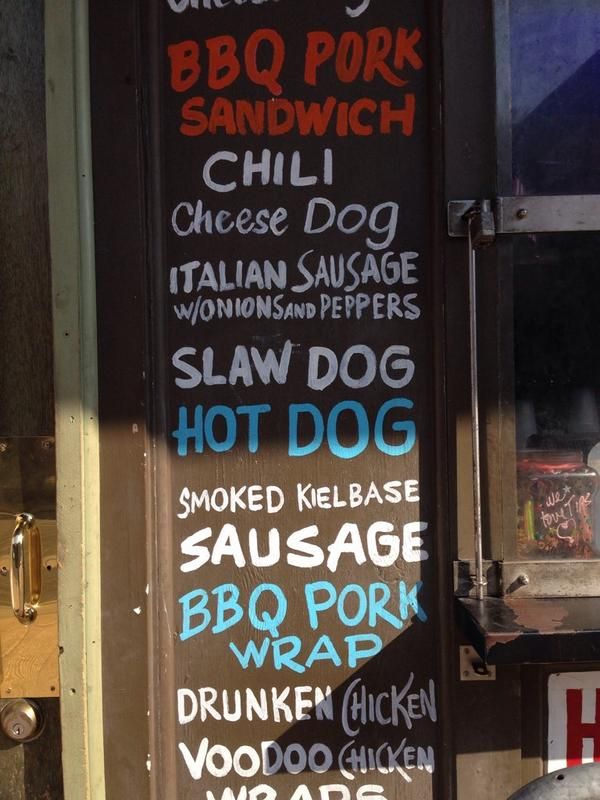 BBQ PORK
SANDWICH
CHILI
Cheese Dog
ITALIAN SAUSAGE
W/ONIONS AND PEPPERS
SLAW DOG
HOT DOG
SMOKED KIELBASE
SAUSAGE
BBQ PORK
WRAP
DRUNKEN CHICKEN
VOODOO CHICKEN
WRAPS
we
love Tips
H